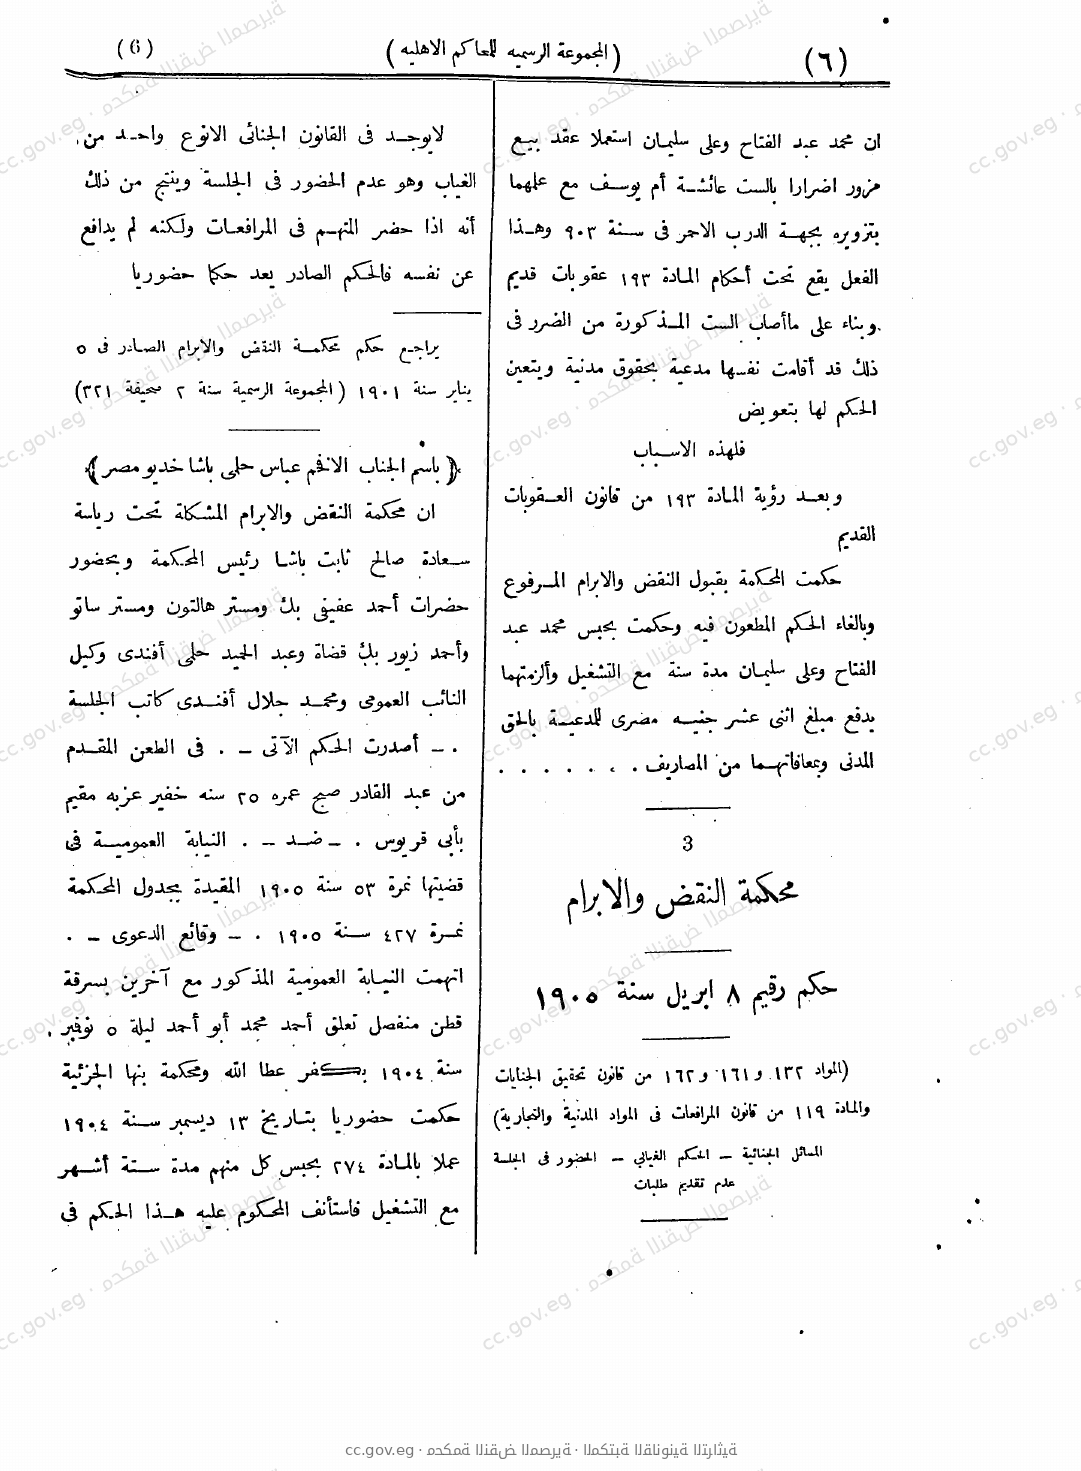 (٦)
(المجموعة الرسميه للمحاكم الاهليه)
(6)
ان محمد عبد الفتاح وعلى سليمان استعملا عقد بيع
مزور اضرارا بالست عائشة أم يوسف مع علمهما
بتزويره بجهة الدرب الاحمر فى سنة ٩٠٣ وهذا
الفعل يقع تحت أحكام المادة ١٩٣ عقوبات قديم
وبناء على ماأصاب الست المذكورة من الضرر فى
ذلك قد أقامت نفسها مدعية بحقوق مدنية ويتعين
الحكم لها بتعويض
فلهذه الاسباب
وبعد رؤية المادة ١٩٣ من قانون العقوبات
القديم
حكمت المحكمة بقبول النقض والابرام المرفوع
وبالغاء الحكم المطعون فيه وحكمت بحبس محمد عبد
الفتاح وعلى سليمان مدة سنة مع التشغيل وألزمتهما
بدفع مبلغ اثنى عشر جنيه مصرى للمدعية بالحق
المدنى وبمعافاتهما من المصاريف . . . . . . .
3
محكمة النقض والابرام
حكم رقيم ٨ ابريل سنة ١٩٠٥
(المواد ١٣٢ و١٦١ و١٦٢ من قانون تحقيق الجنايات
والمادة ١١٩ من قانون المرافعات فى المواد المدنية والتجارية)
المسائل الجنائية – الحكم الغيابي – الحضور فى الجلسة
عدم تقديم طلبات
لايوجد فى القانون الجنائى الانوع واحد من
الغياب وهو عدم الحضور فى الجلسة وينتج من ذلك
أنه اذا حضر المتهم فى المرافعات ولكنه لم يدافع
عن نفسه فالحكم الصادر يعد حكما حضوريا
يراجع حكم محكمة النقض والابرام الصادر فى ٥
يناير سنة ١٩٠١ (المجموعة الرسمية سنة ٢ صحيفة ٣٢١)
﴿باسم الجناب الافخم عباس حلمى باشا خديو مصر﴾
ان محكمة النقض والابرام المشكلة تحت رياسة
سعادة صالح ثابت باشا رئيس المحكمة وبحضور
حضرات أحمد عفيفى بك ومستر هالتون ومستر ساتو
وأحمد زيور بك قضاة وعبد الحميد حلمى أفندى وكيل
النائب العمومى ومحمد جلال أفندى كاتب الجلسة
. – أصدرت الحكم الآتى – . فى الطعن المقدم
من عبد القادر صبح عمره ٢٥ سنه خفير عزبه مقيم
بأبى قريوس . – ضد – . النيابة العمومية فى
قضيتها نمرة ٥٣ سنة ١٩٠٥ المقيدة بجدول المحكمة
نمرة ٤٢٧ سنة ١٩٠٥ . – وقائع الدعوى – .
اتهمت النيابة العمومية المذكور مع آخرين بسرقة
قطن منفصل تعلق أحمد محمد أبو أحمد ليلة ٥ نوفمبر
سنة ١٩٠٤ بكفر عطا الله ومحكمة بنها الجزئية
حكمت حضوريا بتاريخ ١٣ ديسمبر سنة ١٩٠٤
عملا بالمادة ٢٧٤ بحبس كل منهم مدة ستة أشهر
مع التشغيل فاستأنف المحكوم عليه هذا الحكم فى
cc.gov.eg · محكمة النقض المصرية · المكتبة القانونية التراثية